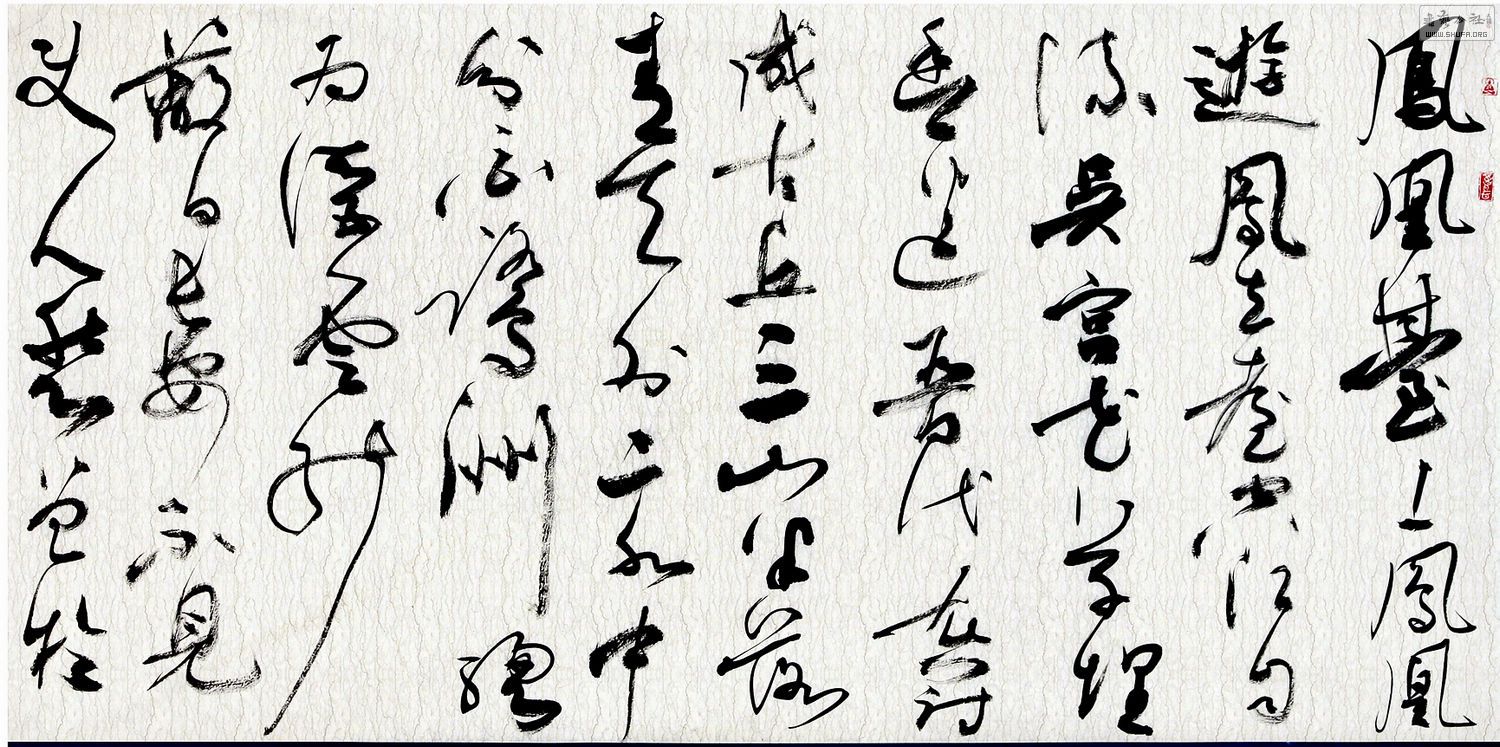 鳳凰臺上鳳凰
遊鳳去臺空江自
流吳宮花草埋
幽徑晉代衣冠
成古丘三山半落
青天外二水中
分白鷺洲總
為浮雲能
蔽日長安不見
使人愁
WWW.SHUFA.ORG